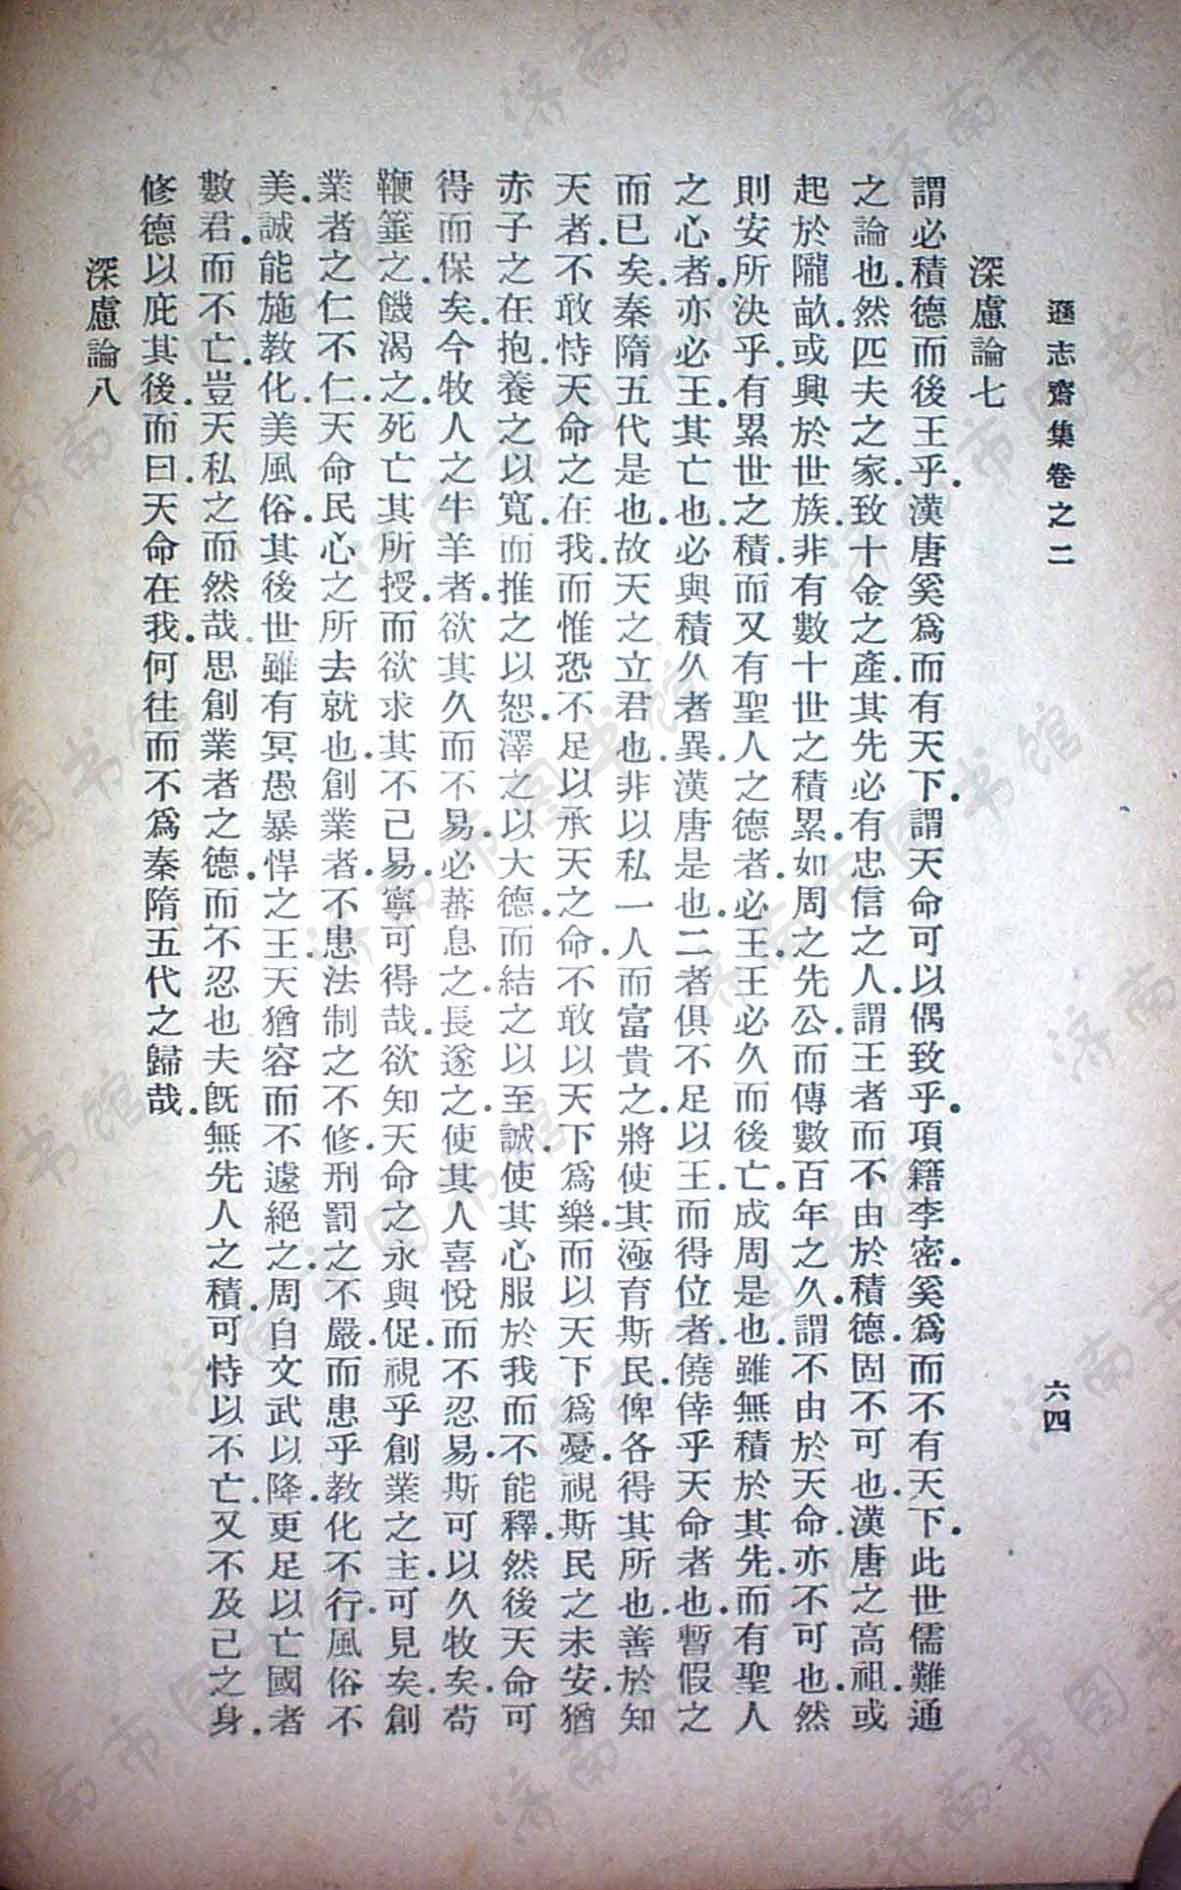 遜志齋集卷之二
六四
深慮論七
謂必積德而後王乎.漢唐奚爲而有天下.謂天命可以偶致乎.項籍李密奚爲而不有天下.此世儒難通
之論也.然匹夫之家.致十金之產.其先必有忠信之人.謂王者而不由於積德.固不可也.漢唐之高祖.或
起於隴畝.或興於世族.非有數十世之積累.如周之先公.而傳數百年之久.謂不由於天命.亦不可也.然
則安所決乎.有累世之積.而又有聖人之德者.必王.王必久而後亡.成周是也.雖無積於其先.而有聖人
之心者.亦必王.其亡也.必與積久者異.漢唐是也.二者俱不足以王.而得位者.僥倖乎天命者也.暫假之
而已矣.秦隋五代是也.故天之立君也.非以私一人而富貴之.將使其極育斯民.俾各得其所也.善於知
天者.不敢恃天命之在我.而惟恐不足以承天之命.不敢以天下爲樂.而以天下爲憂.視斯民之未安.猶
赤子之在抱.養之以寬.而推之以恕.澤之以大德.而結之以至誠.使其心服於我而不能釋.然後天命可
得而保矣.今牧人之牛羊者.欲其久而不易.必蕃息之.長遂之.使其人喜悅而不忍易.斯可以久牧矣.苟
鞭箠之.饑渴之.死亡其所授.而欲求其不己易.寧可得哉.欲知天命之永與促.視乎創業之主.可見矣.創
業者之仁不仁.天命民心之所去就也.創業者.不患法制之不修.刑罰之不嚴.而患乎教化不行.風俗不
美.誠能施教化.美風俗.其後世雖有冥愚暴悍之王.天猶容而不遽絕之.周自文武以降.更足以亡國者
數君.而不亡.豈天私之而然哉.思創業者之德.而不忍也.夫既無先人之積.可恃以不亡.又不及己之身.
修德以庇其後.而曰.天命在我.何往而不爲秦隋五代之歸哉.
深慮論八
济南市图书馆